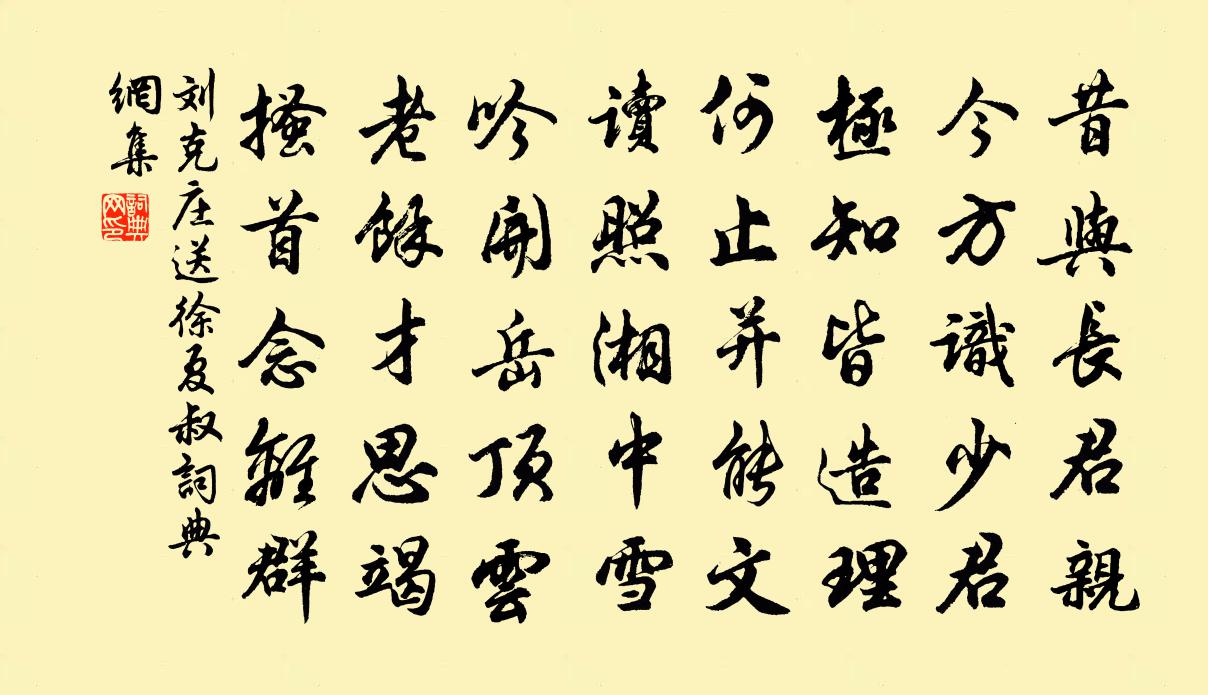 昔與長君親
今方識少君
極知皆造理
何止并能文
讀照湘中雪
吟開岳頂雲
老餘才思竭
搔首念離群
刘克庄送徐夐叔詞典
網集
詞典
网印